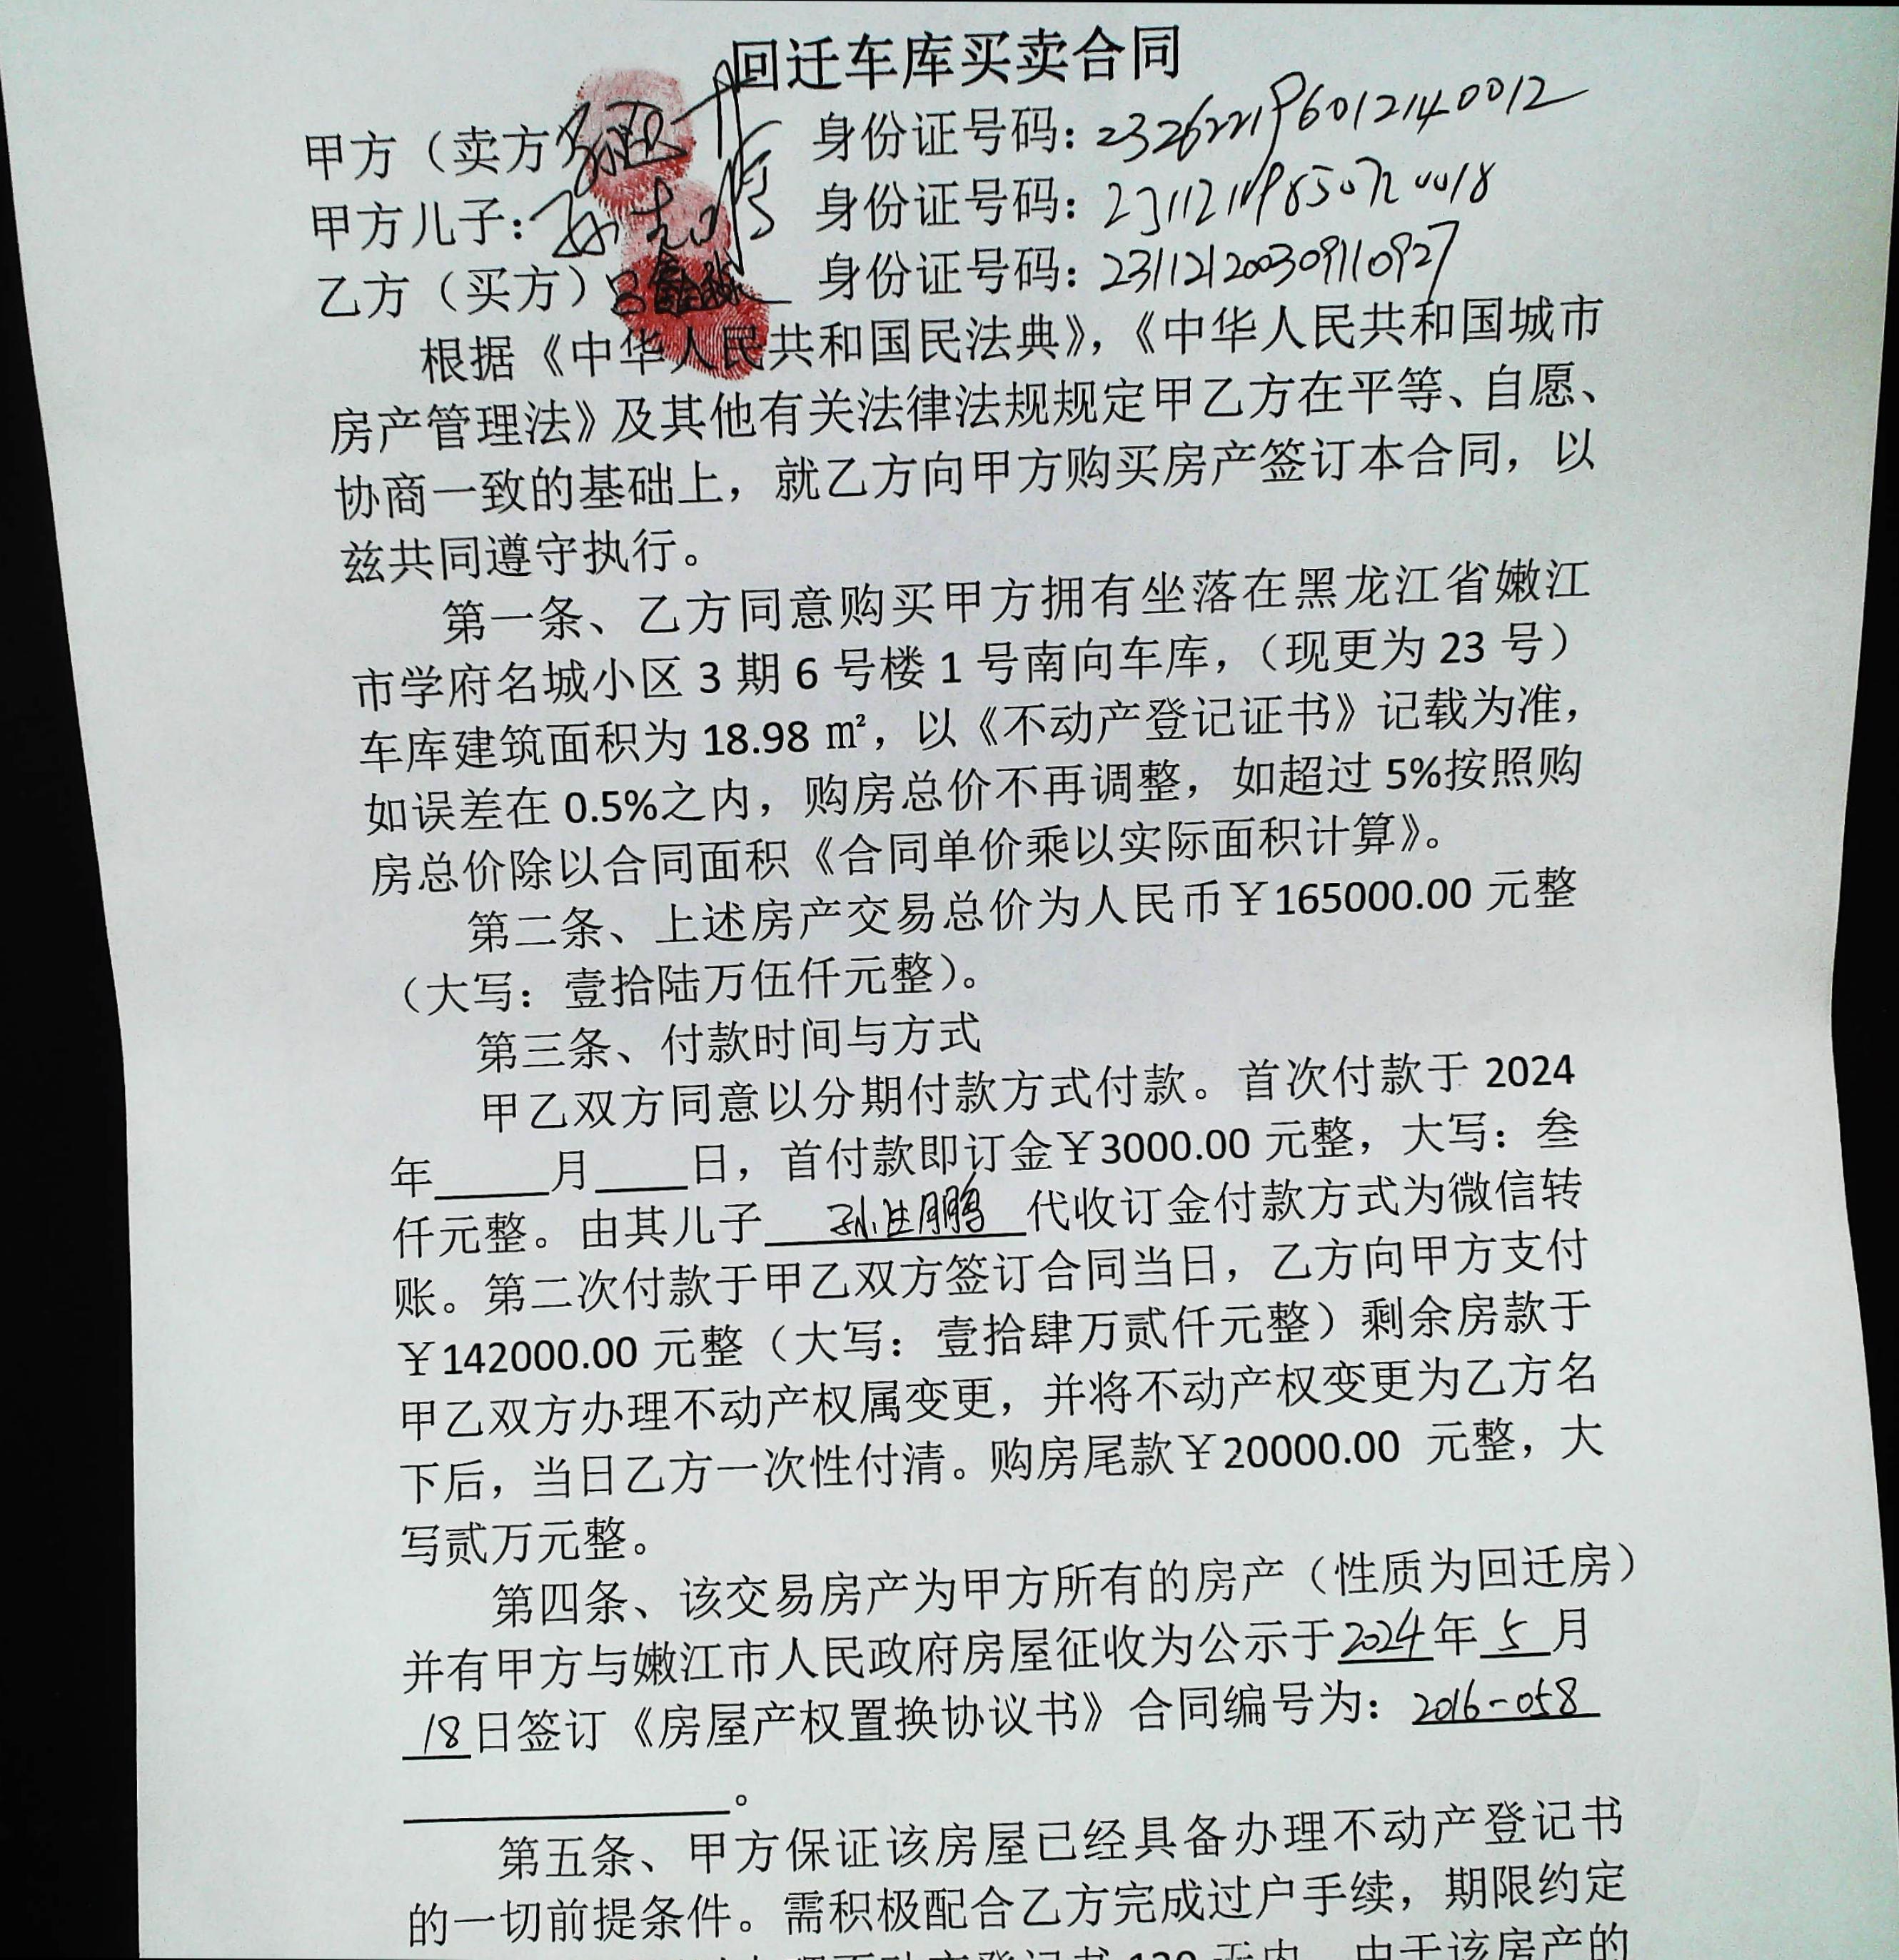 回迁车库买卖合同
甲方（卖方 身份证号码：232622196012140012
甲方儿子：孙志鹏 身份证号码：
乙方（买方）吕 身份证号码：231121200309110927
根据《中华人民共和国民法典》，《中华人民共和国城市
房产管理法》及其他有关法律法规规定甲乙方在平等、自愿、
协商一致的基础上，就乙方向甲方购买房产签订本合同，以
兹共同遵守执行。
第一条、乙方同意购买甲方拥有坐落在黑龙江省嫩江
市学府名城小区 3 期 6 号楼 1 号南向车库，（现更为 23 号）
车库建筑面积为 18.98 ㎡，以《不动产登记证书》记载为准，
如误差在 0.5%之内，购房总价不再调整，如超过 5%按照购
房总价除以合同面积《合同单价乘以实际面积计算》。
第二条、上述房产交易总价为人民币￥165000.00 元整
（大写：壹拾陆万伍仟元整）。
第三条、付款时间与方式
甲乙双方同意以分期付款方式付款。首次付款于 2024
年____月____日，首付款即订金￥3000.00 元整，大写：叁
仟元整。由其儿子 孙志鹏 代收订金付款方式为微信转
账。第二次付款于甲乙双方签订合同当日，乙方向甲方支付
￥142000.00 元整（大写：壹拾肆万贰仟元整）剩余房款于
甲乙双方办理不动产权属变更，并将不动产权变更为乙方名
下后，当日乙方一次性付清。购房尾款￥20000.00 元整，大
写贰万元整。
第四条、该交易房产为甲方所有的房产（性质为回迁房）
并有甲方与嫩江市人民政府房屋征收为公示于2024年 5 月
18日签订《房屋产权置换协议书》合同编号为：2016-058
____________。
第五条、甲方保证该房屋已经具备办理不动产登记书
的一切前提条件。需积极配合乙方完成过户手续，期限约定
不动产登记书 120 天内，由于该房产的